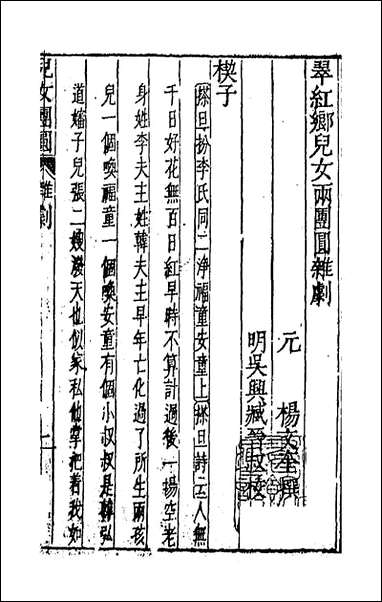 翠紅鄉兒女兩團圓雜劇
元　楊文奎撰
明吳興臧晉叔校
楔子
搽旦扮李氏同二淨福童安童上搽旦詩云人無
千日好花無百日紅早時不算計過後一場空老
身姓李夫主姓韓夫主早年亡化過了所生兩孩
兒一個喚福童一個喚安童有個小叔叔是韓弘
道嬸子兒張二嫂潑天也似家私他掌把着我如
兒女團圓　雜劇
一